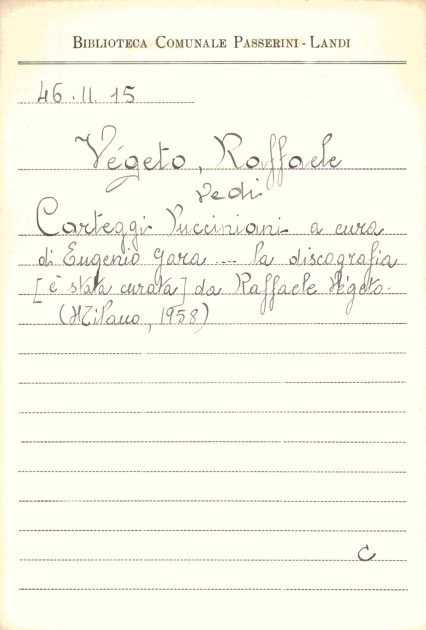 BIBLIOTECA COMUNALE PASSERINI - LANDI
46.II.15
Végeto, Raffaele
vedi
Carteggi Pucciniani a cura
di Eugenio Gara ... la discografia
[è stata curata] da Raffaele Végeto.
(Milano, 1958)
C